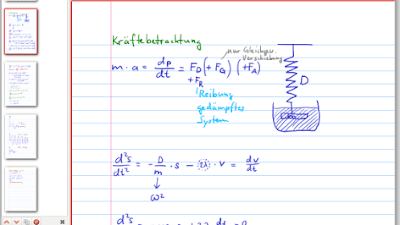 Kräftebetrachtung
nur Gleichgew.
Verschiebung
m · a = dp/dt = F_D (+ F_G) (+F_A)
+ F_R
Reibung
gedämpftes
System
D
d²s/dt² = - D/m · s - 2λ · v = dv/dt
ω²
d²s